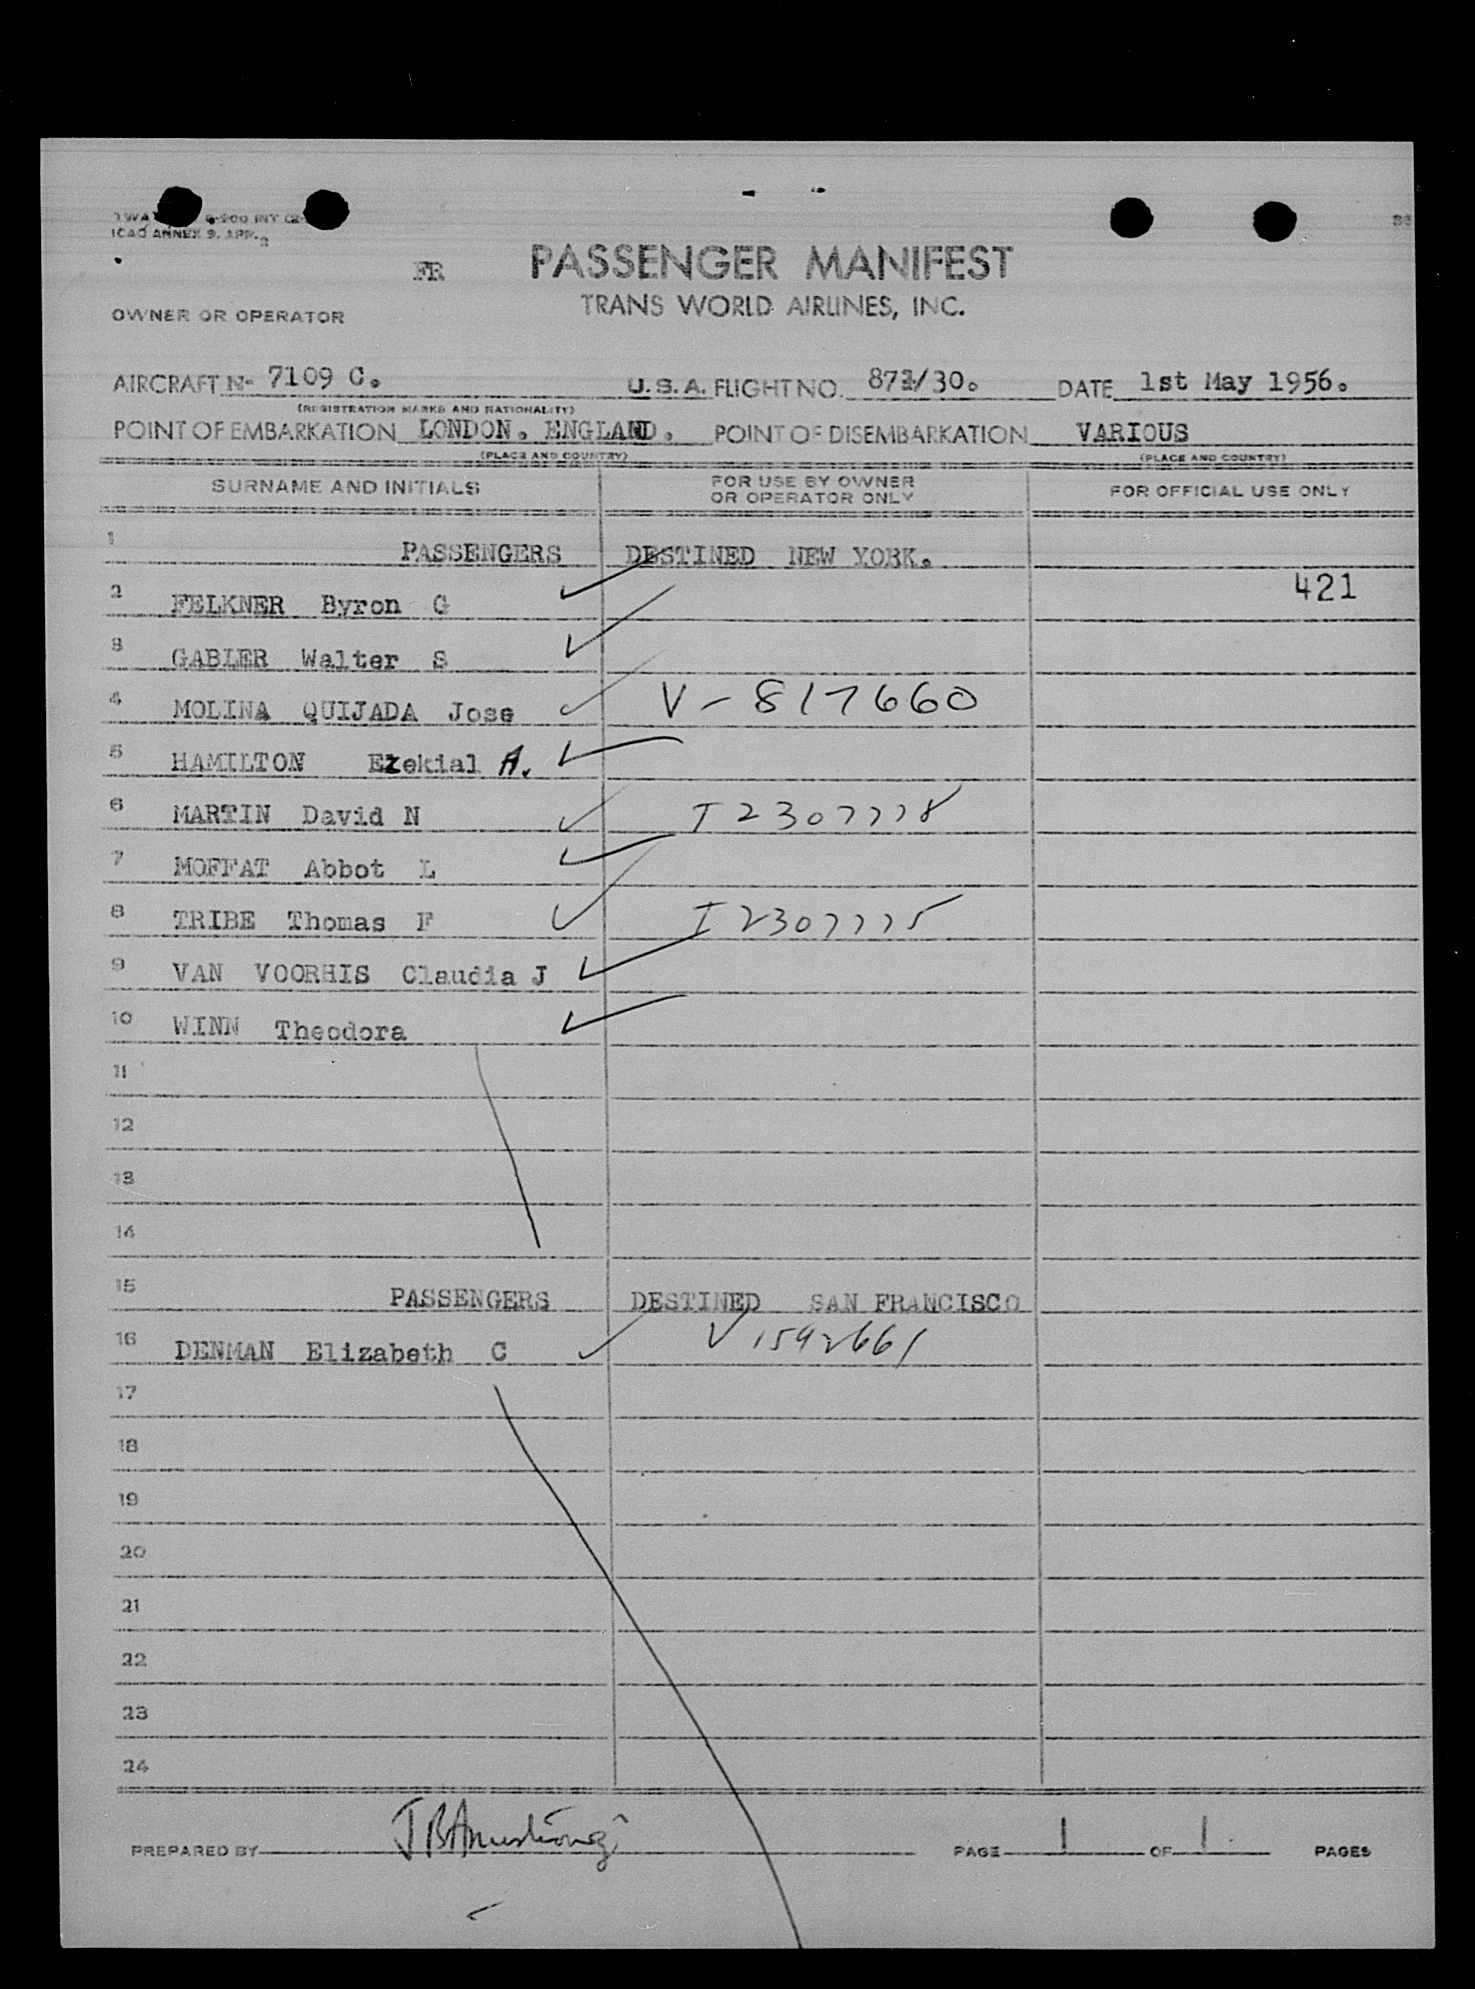 ICAO ANNEX 9. APP. 2
FR PASSENGER MANIFEST
TRANS WORLD AIRLINES, INC.
OWNER OR OPERATOR
AIRCRAFT N- 7109 C. U.S.A. FLIGHT NO. 871/30. DATE 1st May 1956.
(REGISTRATION MARKS AND NATIONALITY)
POINT OF EMBARKATION LONDON. ENGLAND. POINT OF DISEMBARKATION VARIOUS
(PLACE AND COUNTRY) (PLACE AND COUNTRY)
SURNAME AND INITIALS FOR USE BY OWNER OR OPERATOR ONLY FOR OFFICIAL USE ONLY
1 PASSENGERS DESTINED NEW YORK.
2 FELKNER Byron G 421
3 GABLER Walter S
4 MOLINA QUIJADA Jose V-817660
5 HAMILTON Ezekial A.
6 MARTIN David N I2307778
7 MOFFAT Abbot L
8 TRIBE Thomas F I2307775
9 VAN VOORHIS Claudia J
10 WINN Theodora
11
12
13
14
15 PASSENGERS DESTINED SAN FRANCISCO
16 DENMAN Elizabeth C V1592661
17
18
19
20
21
22
23
24
PREPARED BY J B Armstrong PAGE 1 OF 1 PAGES